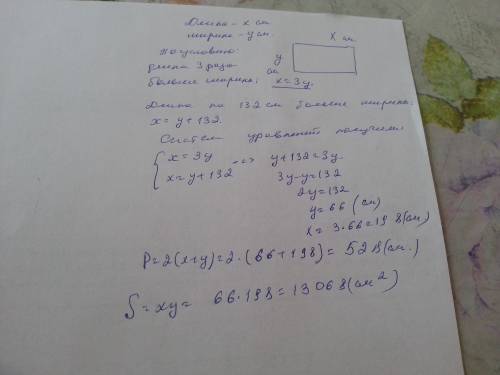 Длина - x см
ширина - y см.
По условию:
x см
y
см
длина 3 раза
больше ширина; x = 3y.
Длина на 132 см больше ширина;
x = y + 132.
Систем уравнений получим:
{ x = 3y => y + 132 = 3y.
x = y + 132 3y - y = 132
2y = 132
y = 66 (см)
x = 3 · 66 = 198 (см)
P = 2(x+y) = 2 · (66 + 198) = 528 (см.)
S = xy = 66 · 198 = 13068 (см²)